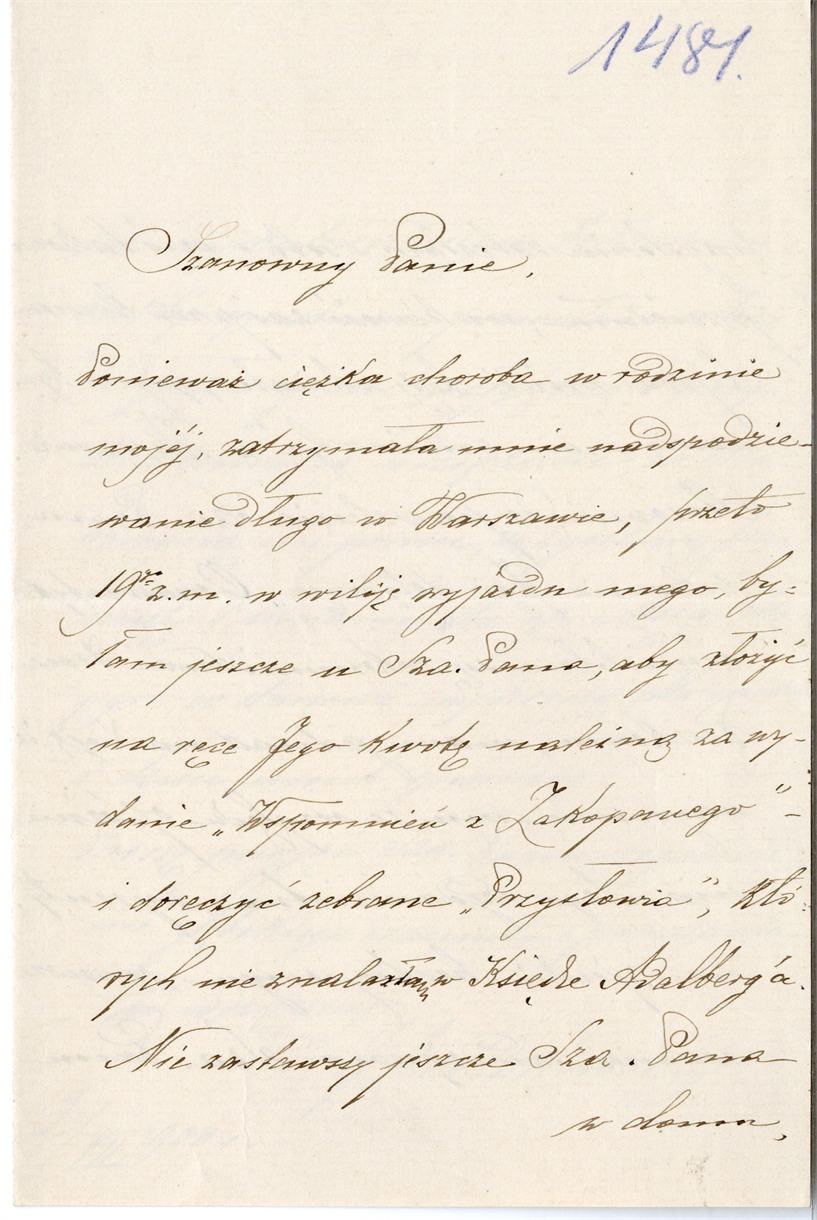 1481.
Szanowny Panie,
Ponieważ ciężka choroba w rodzinie
mojéj, zatrzymała mnie nadspodzie-
wanie długo w Warszawie, przeto
19go z. m. w wiliję wyjazdu mego, by-
łam jeszcze u Sza. Pana, aby złożyć
na ręce Jego kwotę należną za wy-
danie „Wspomnień z Zakopanego” -
i doręczyć zebrane „Przysłowia”, któ-
rych nie znalazłam w Księdze Adalberg'a.
Nie zastawszy jeszcze Sza. Pana
w domu,